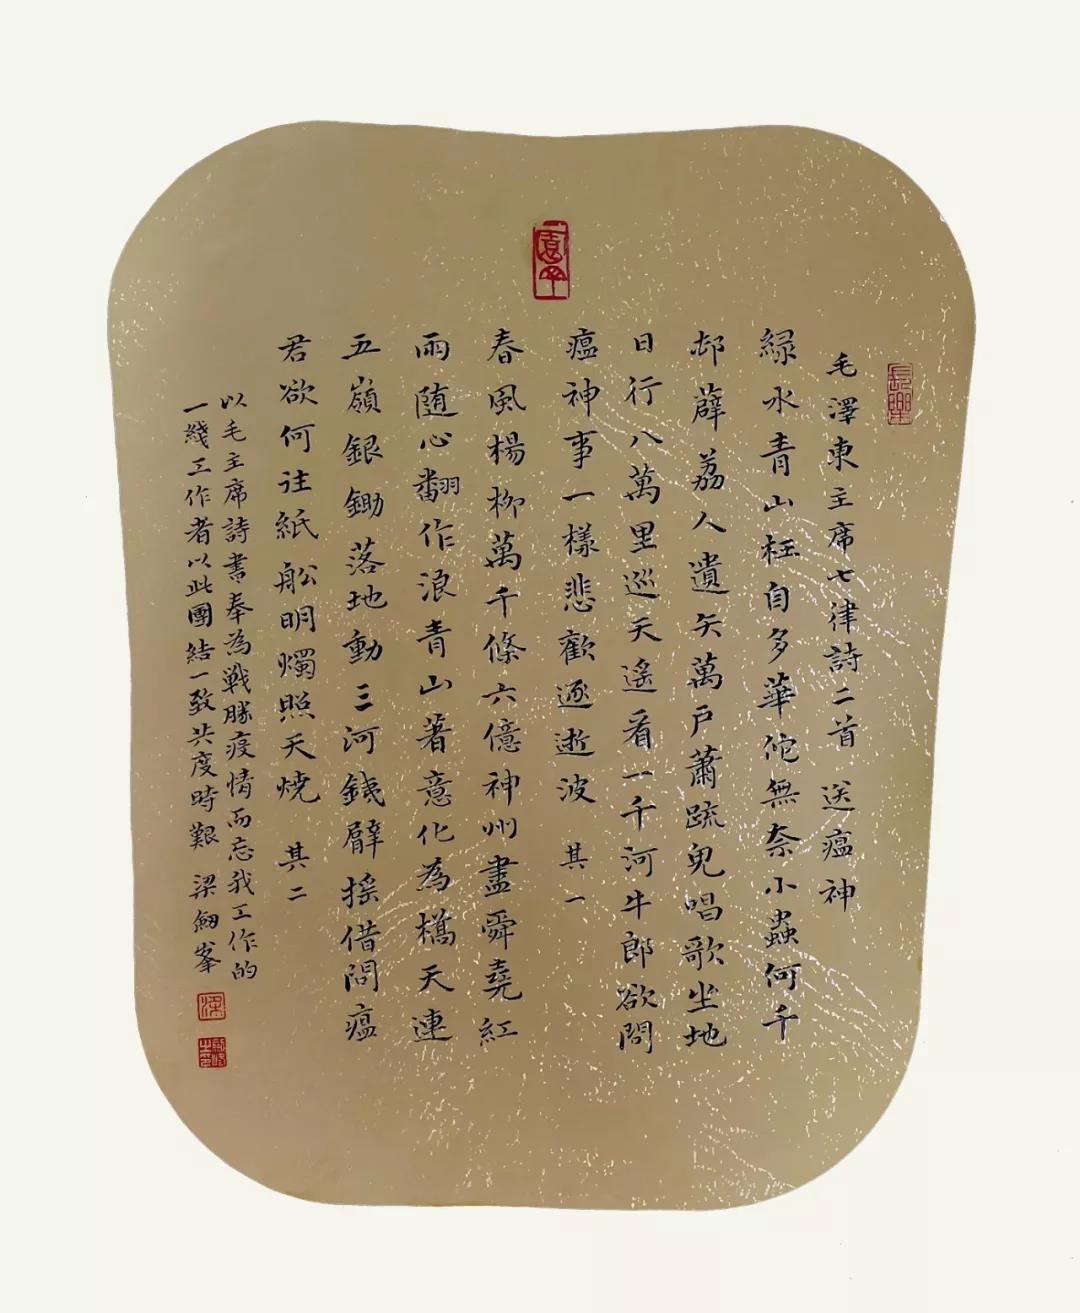 毛澤東主席七律詩二首 送瘟神
緑水青山枉自多華佗無奈小蟲何千
邨薜荔人遺矢萬戸蕭疏鬼唱歌坐地
日行八萬里巡天遙看一千河牛郎欲問
瘟神事一樣悲歡逐逝波 其一
春風楊柳萬千條六億神州盡舜堯紅
雨随心翻作浪青山著意化為橋天連
五嶺銀鋤落地動三河鐵臂搖借問瘟
君欲何往紙船明燭照天燒 其二
以毛主席詩書奉為戰勝疫情而忘我工作的
一綫工作者以此團結一致共度時艱 梁劍峯
長樂